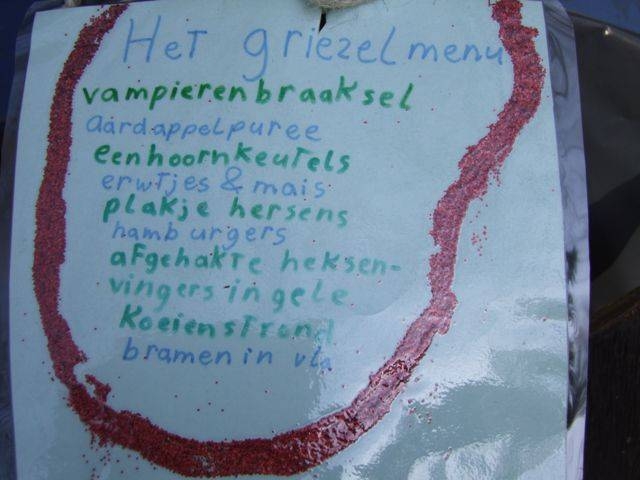 Het griezelmenu
vampierenbraaksel
aardappelpuree
eenhoornkeutels
erwtjes & mais
plakje hersens
hamburgers
afgehakte heksen-
vingers in gele
koeienstrond
bramen in vla